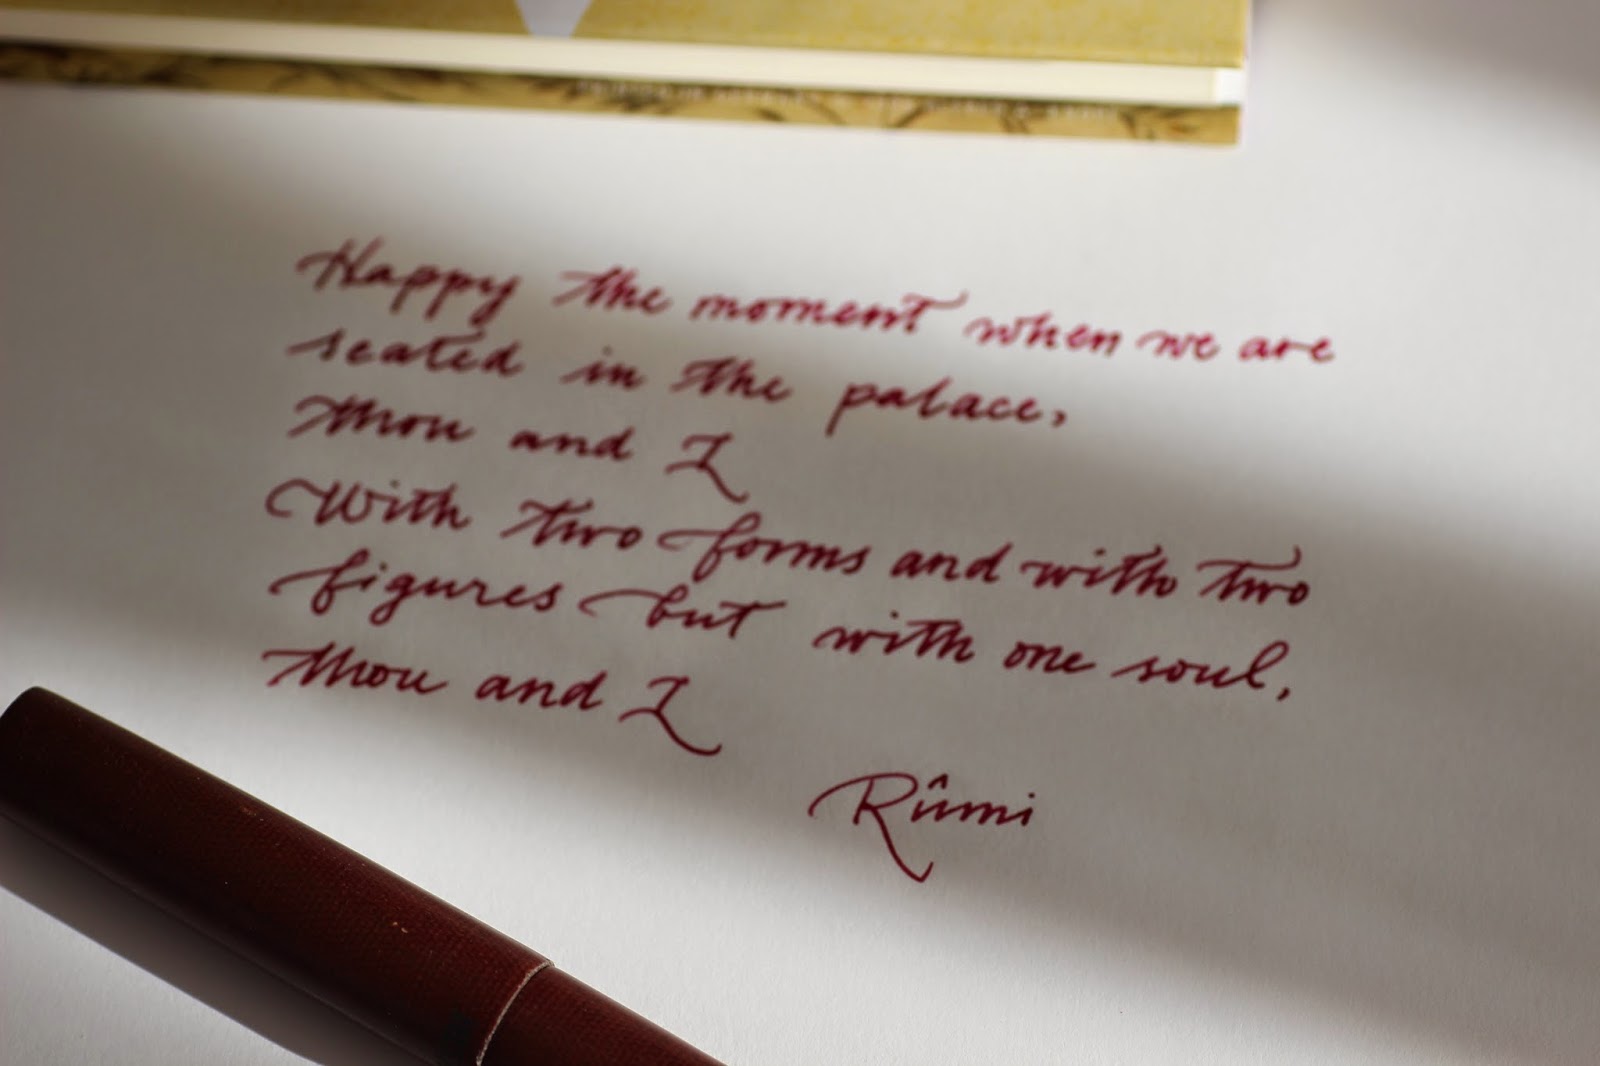 Happy the moment when we are
seated in the palace,
thou and I
With two forms and with two
figures but with one soul,
thou and I
Rûmi